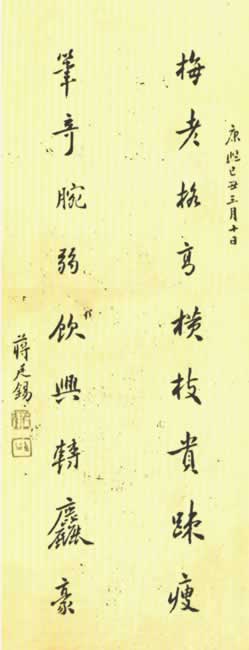 康熙己丑三月十日
梅老格高橫枝貴踈瘦
筆竒腕弱飲興轉麤豪
蔣廷錫